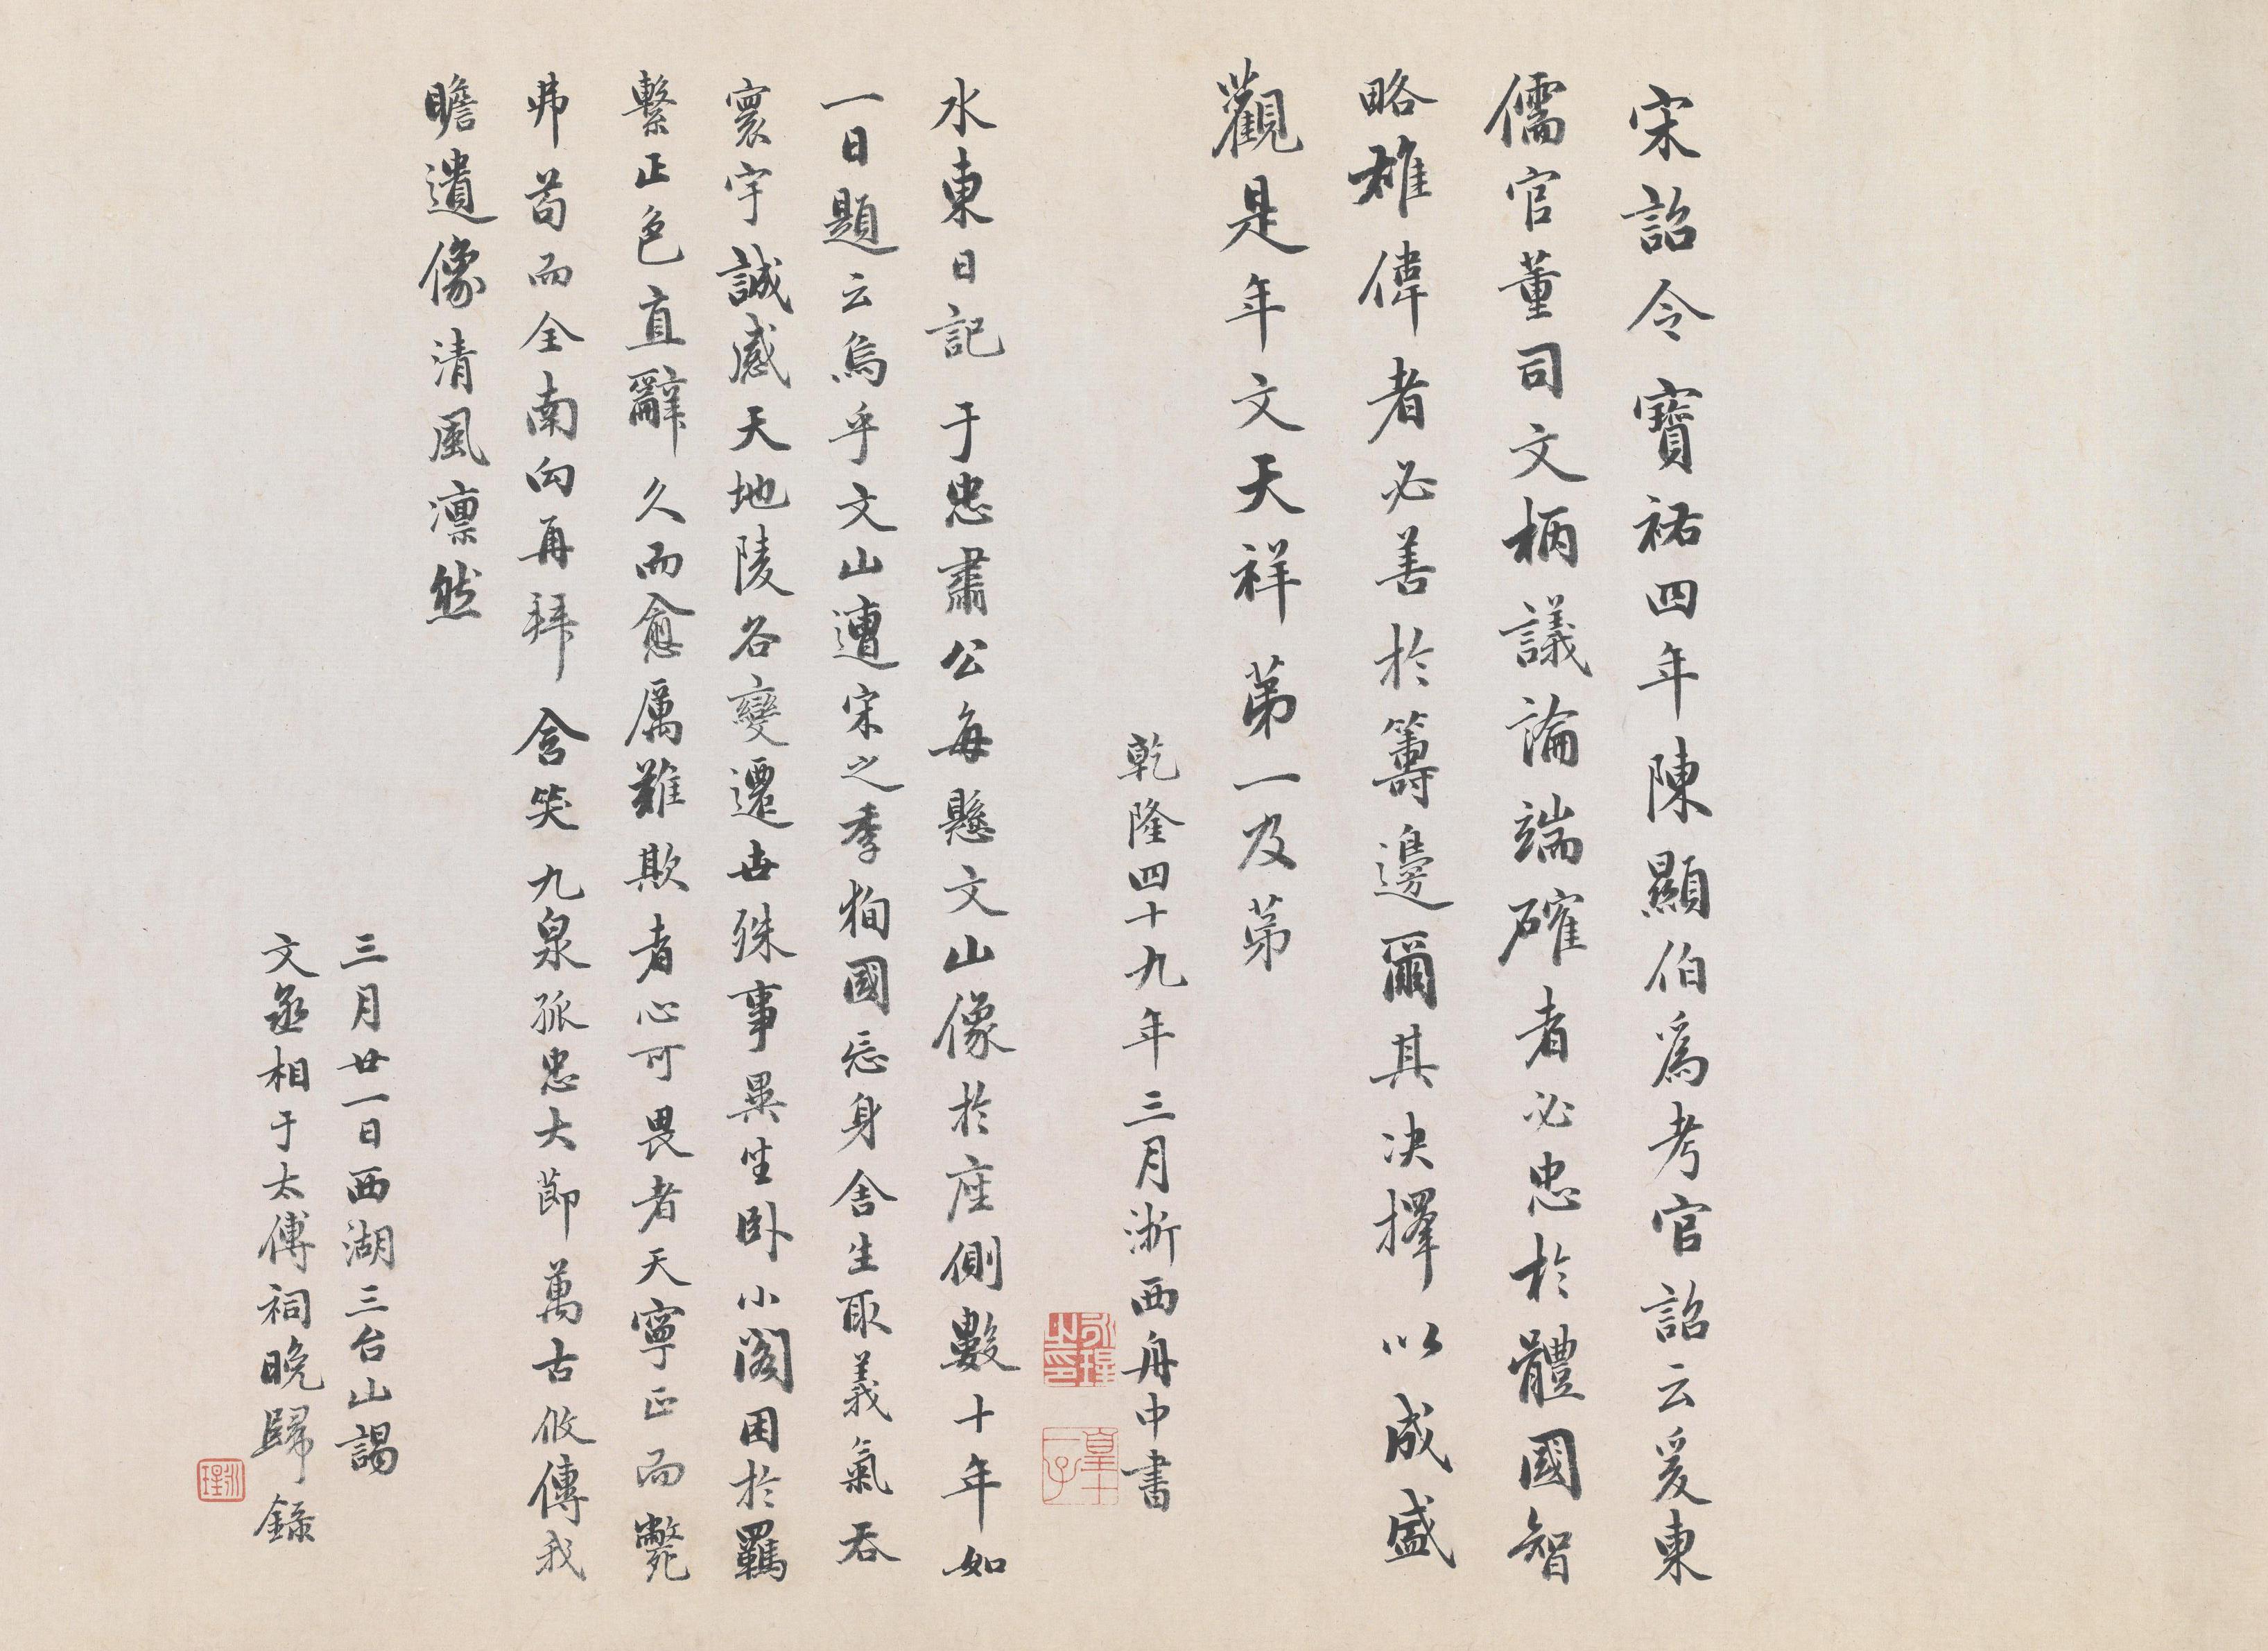 宋詔令寶祐四年陳顯伯爲考官詔云爰東
儒官董司文柄議論端確者必忠於體國智
略雄偉者必善於籌邊爾其决擇以成盛
觀是年文天祥苐一及苐
乾隆四十九年三月浙西舟中書
永瑆之印
皇十一子
水東日記于忠肅公每懸文山像於座側數十年如
一日題云烏乎文山遭宋之季徇國忘身舍生取義氣吞
寰宇誠感天地陵谷變遷世殊事異坐卧小閣困於羈
繫正色直辭久而愈厲難欺者心可畏者天寧正而斃
弗苟而全南向再拜含笑九泉孤忠大節萬古攸傳我
瞻遺像清風凛然
三月廿一日西湖三台山謁
文丞相于太傅祠晚歸錄
永瑆